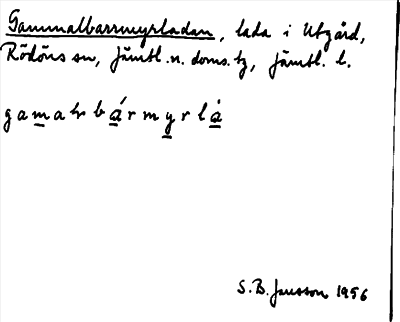 Gammalbarrmyrladan, lada i Utgård,
Rödöns sn, Jämtl. n. doms. tg, Jämtl. l.
gamaḷbármyrlȧ
S.B. Jansson 1956